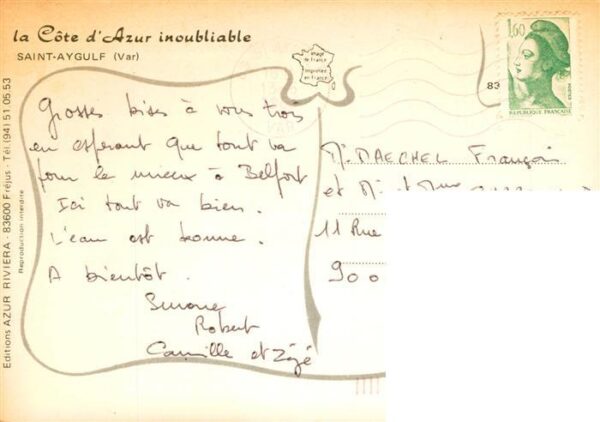 la Côte d'Azur inoubliable
SAINT-AYGULF (Var)
Grosses bises à vous trois
en espérant que tout va
pour le mieux à Belfort
Ici tout va bien.
L'eau est bonne.
A bientôt.
Simone
Robert
Camille et Zézé
image de France
imprimée en France
83
1,60
REPUBLIQUE FRANÇAISE
POSTES
Mr MAECHEL François
et Mr et Mme
11 Rue
900
Editions AZUR RIVIERA - 83600 Fréjus - Tél. (94) 51 05 53
Reproduction interdite